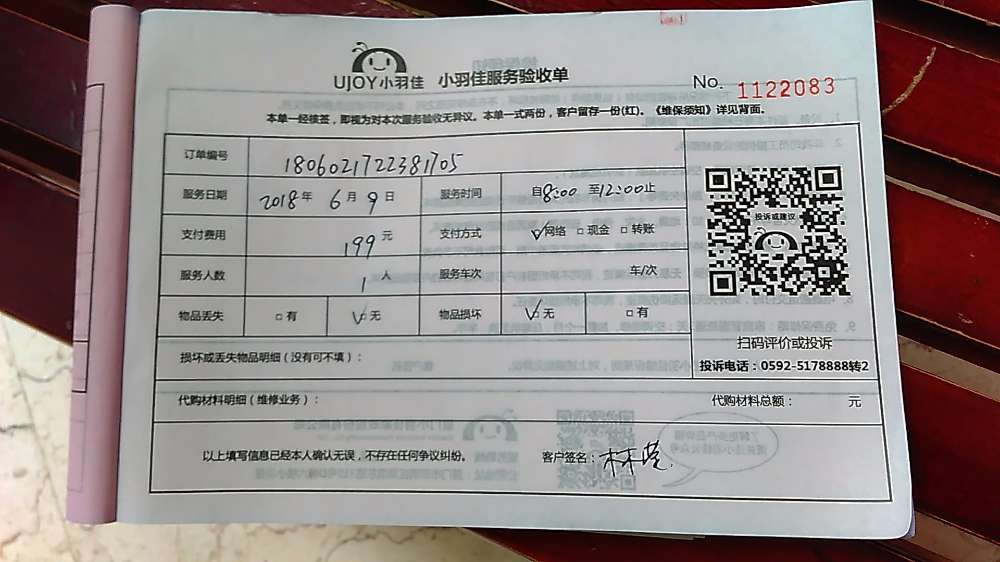 UJOY小羽佳 小羽佳服务验收单
No. 1122083
本单一经核签，即视为对本次服务验收无异议。本单一式两份，客户留存一份(红)。《维保须知》详见背面。
订单编号 1806021722381705
服务日期 2018年 6月9日 服务时间 自8:00 至12:00止
支付费用 199元 支付方式 ☑网络 □现金 □转账
服务人数 1人 服务车次 车/次
物品丢失 □有 ☑无 物品损坏 ☑无 □有
投诉或建议
扫码评价或投诉
投诉电话：0592-5178888转2
损坏或丢失物品明细（没有可不填）：
代购材料明细（维修业务）： 代购材料总额： 元
以上填写信息已经本人确认无误，不存在任何争议纠纷。 客户签名：林